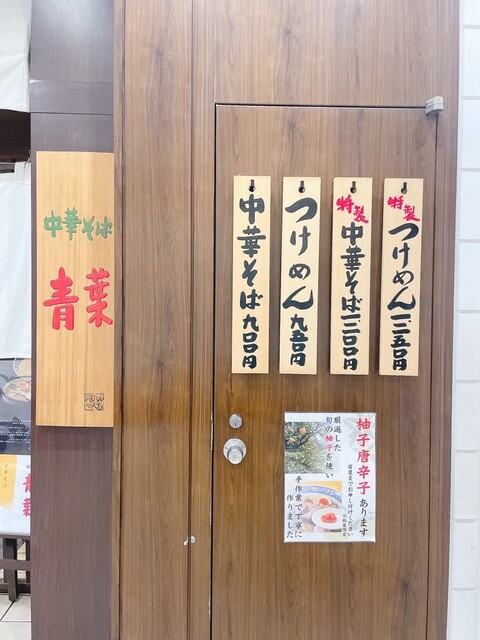 中華そば
青葉
中華そば 九〇〇円
つけめん 九五〇円
特製
中華そば 一二〇〇円
特製
つけめん 一二五〇円
柚子唐辛子あります
店員までお申し付けください
厳選した
旬の柚子を使い
手作業で丁寧に
作りました
青葉